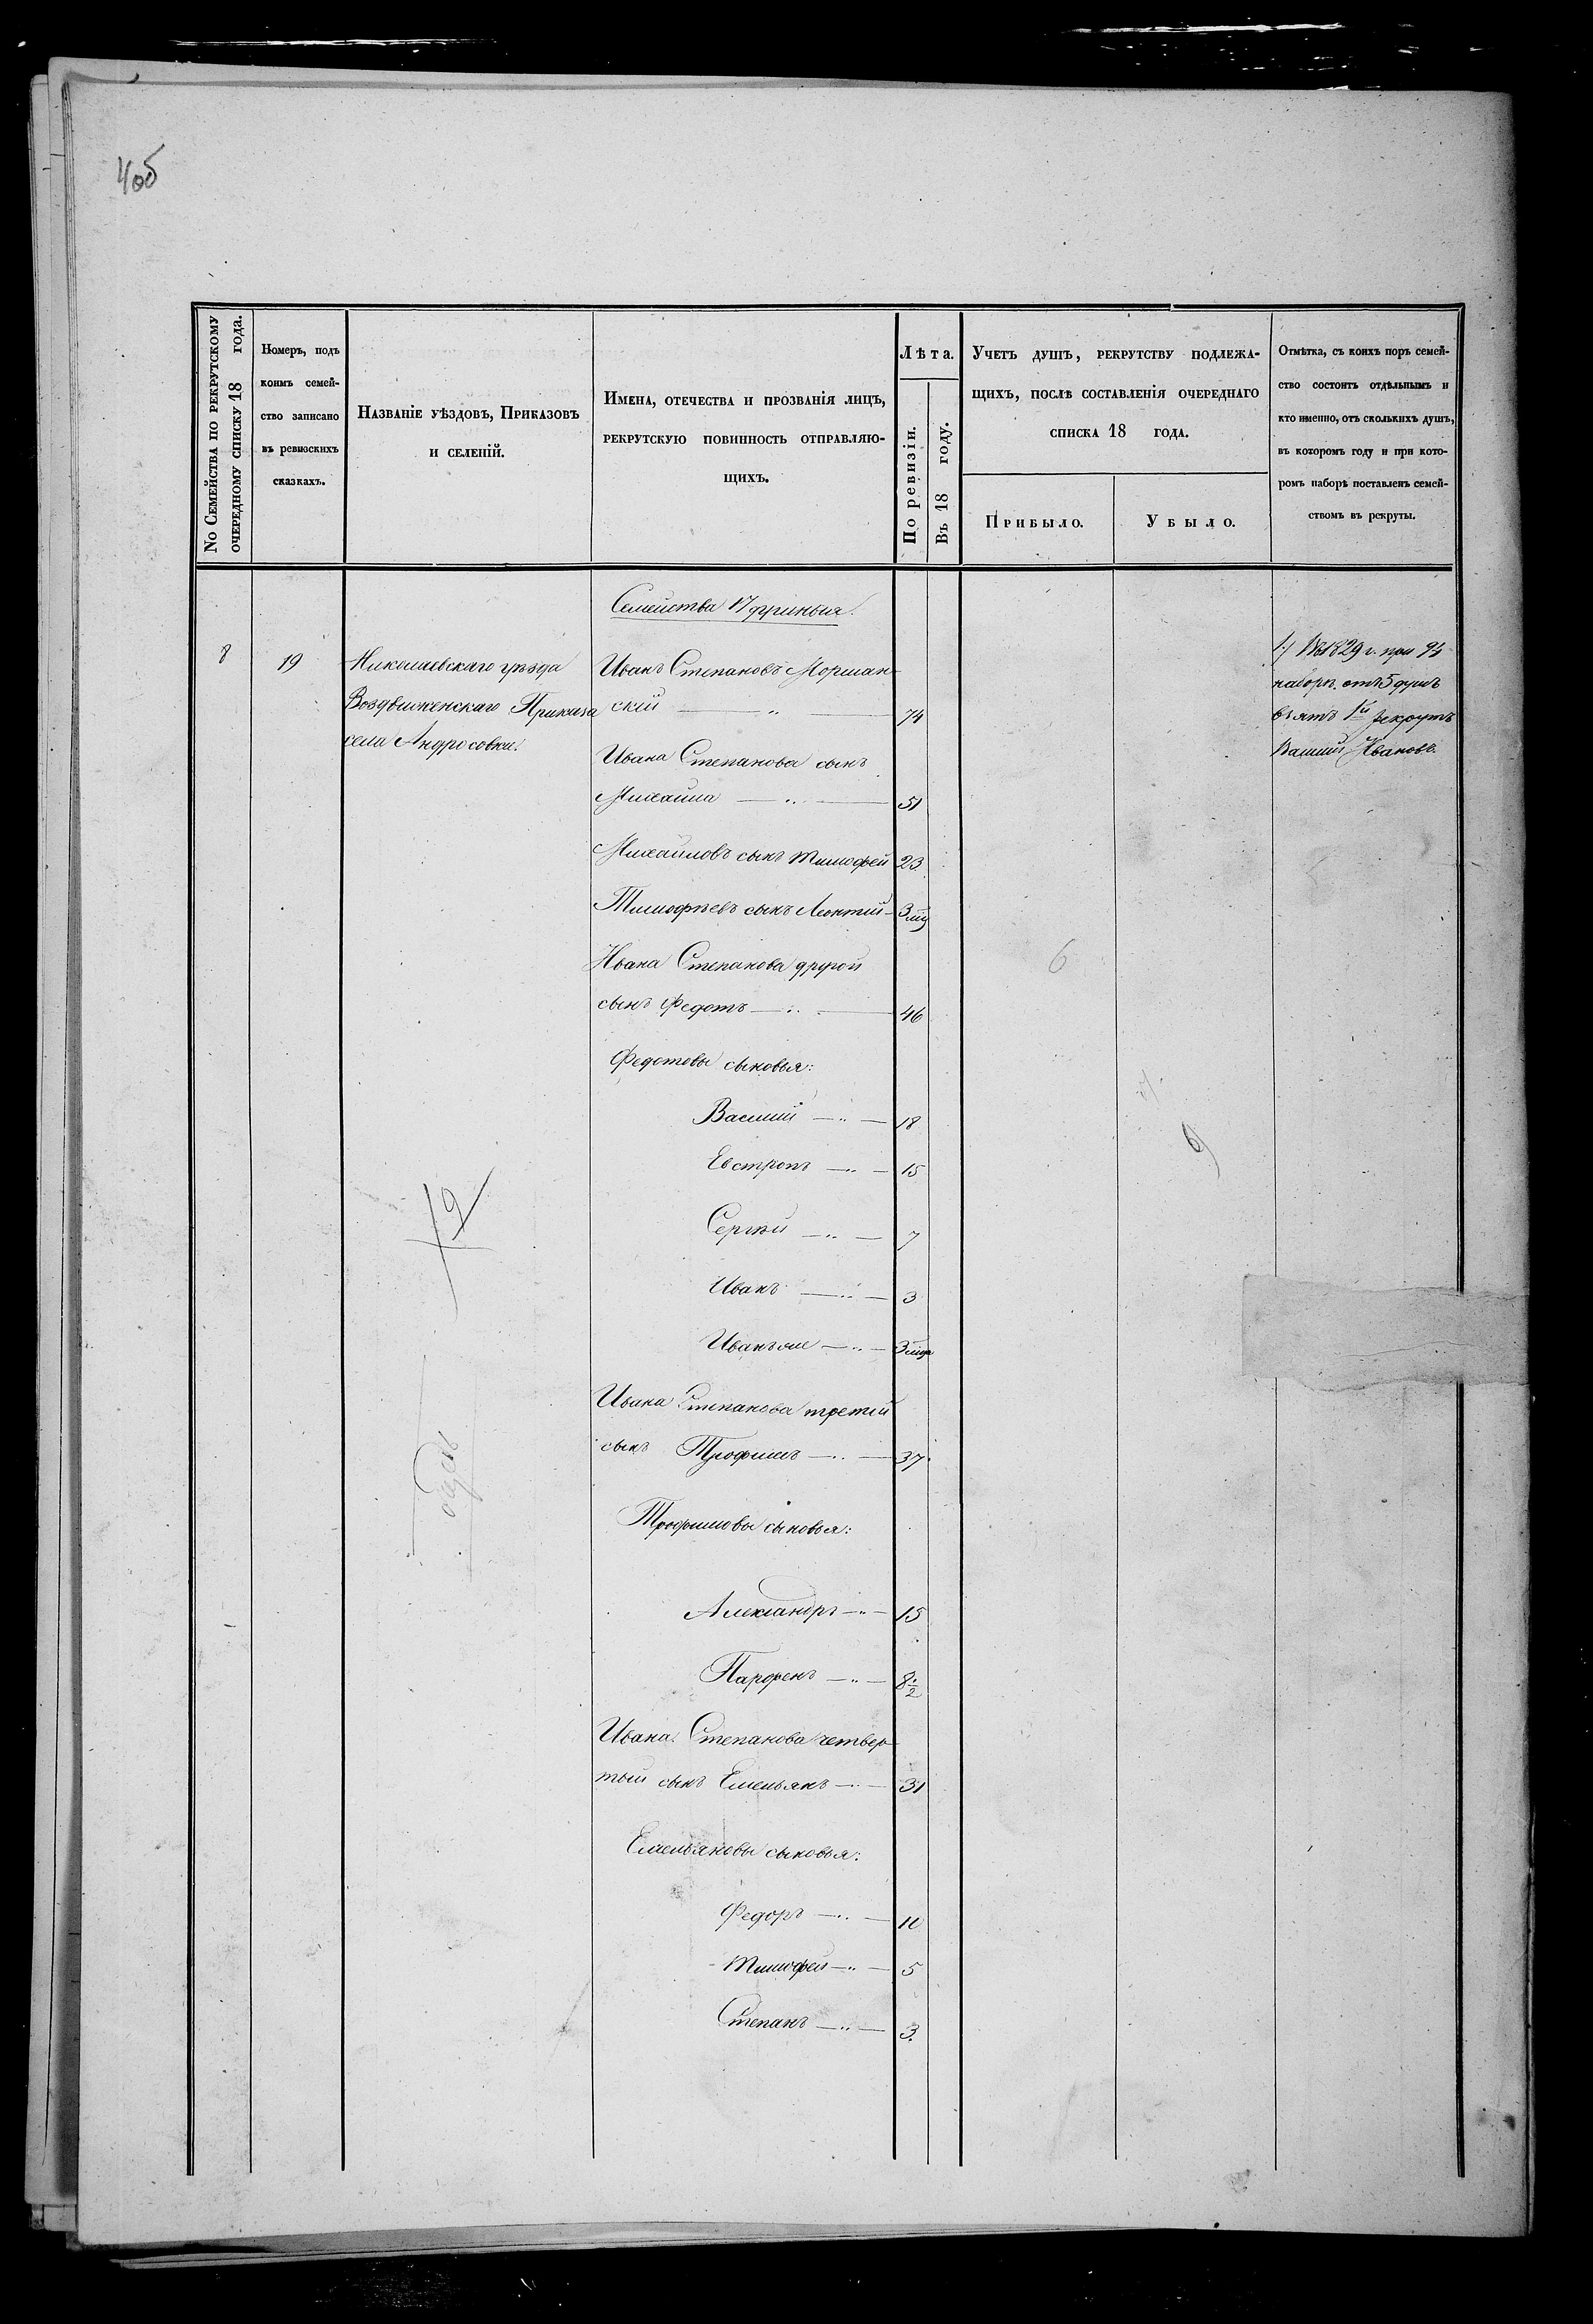 4об
№ Семейства по рекрутскому
очередному списку 18 года.
Номеръ, подъ
коимъ семей-
ство записано
въ ревизскихъ
сказкахъ.
Названіе уѣздовъ, Приказовъ
и селеній.
Имена, отечества и прозванія лицъ,
рекрутскую повинность отправляю-
щихъ.
Лѣта.
По ревизіи.
Въ 18 году.
Учетъ душъ, рекрутству подлежа-
щихъ, послѣ составленія очереднаго
списка 18 года.
Прибыло.
Убыло.
Отмѣтка, съ коихъ поръ семей-
ство состоитъ отдѣльнымъ и
кто именно, отъ сколькихъ душъ,
въ которомъ году и при кото-
ромъ наборѣ поставленъ семей-
ствомъ въ рекруты.
Семейства 17 душныя.
8
19
Николаевскаго уѣзда
Воздвиженскаго Приказа
села Андросовки.
Иванъ Степановъ Моршан-
скій — „ — 74
Ивана Степанова сынъ
Михаила — „ — 51
Михайловъ сынъ Тимофей 23
Тимофѣевъ сынъ Леонтій - 3
Ивана Степанова другой
сынъ Федотъ — „ — 46
Федотовы сыновья:
Василий — „ — 18
Евстропъ — „ — 15
Сергѣй — „ — 7
Иванъ — „ — 3
Иванъ же — „ — 3
Ивана Степанова третій
сынъ Трофимъ — „ — 37
Трофимовы сыновья:
Александръ — „ — 15
Парфенъ — „ — 8½
Ивана Степанова четвер-
тый сынъ Емельянъ — „ — 31
Емельяновы сыновья:
Федоръ — „ — 10
Тимофей — „ — 5
Степанъ — „ — 3.
1.) Въ 1829 г. при 94
наборѣ отъ 5 душъ
взятъ 1й рекрутъ
Василий Ивановъ.
6
9
12